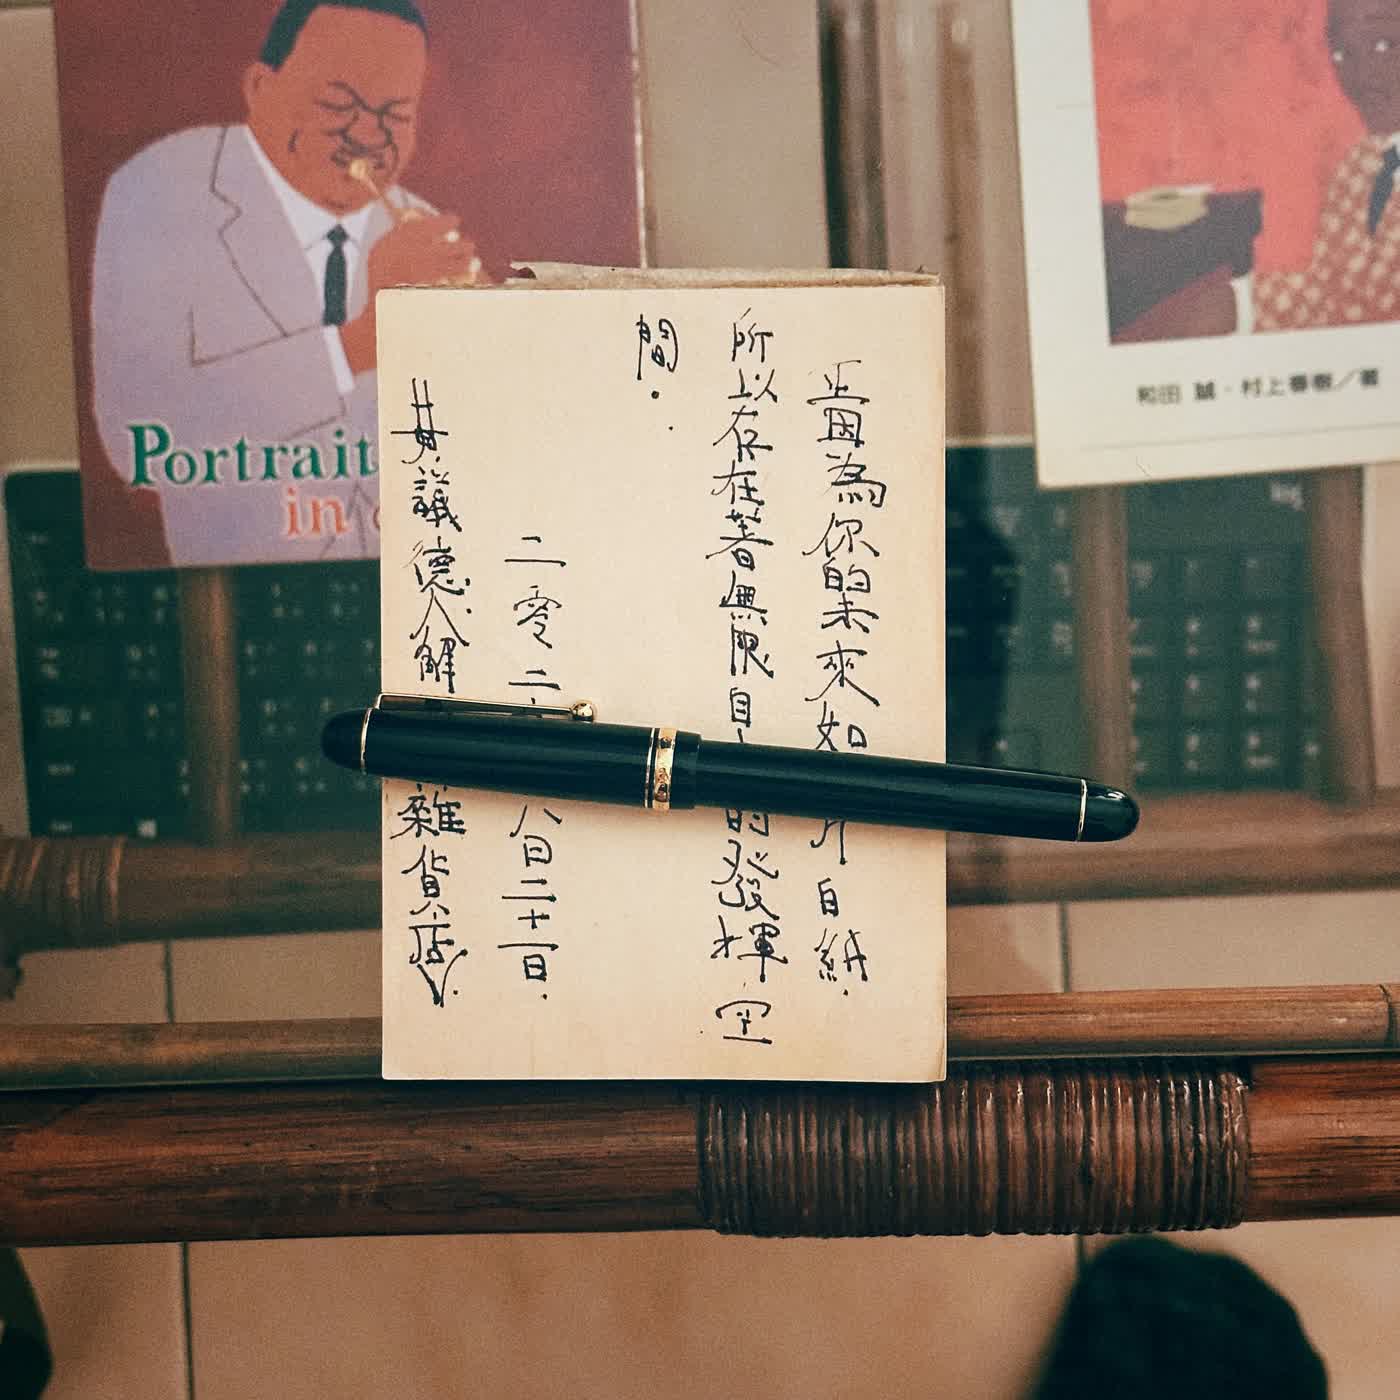 正因為你的未來如
片白紙.
所以存在著無限自
的發揮空
間.
二零二
八日二十一日.
議德人解
雜貨店
Portrait
in
和田 誠・村上春樹/著